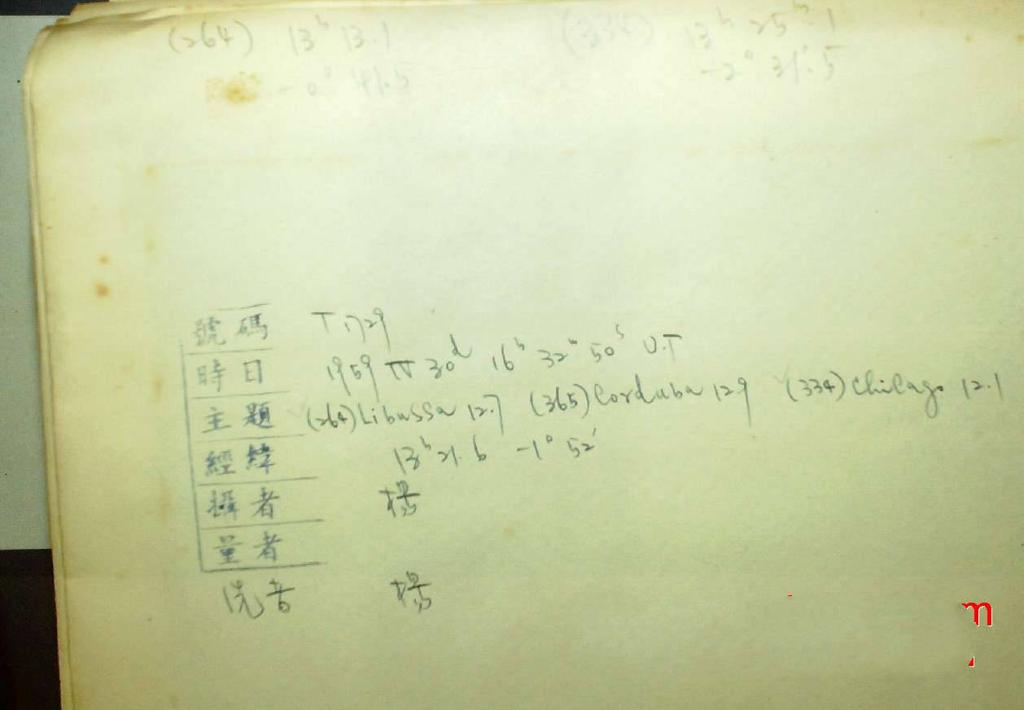 (264) 13ʰ 13.1 (334) 13ʰ 25ᵐ.1
-0° 41.5 -2° 31'.5
號碼 T 1729
時日 1959 IV 30ᵈ 16ʰ 32ᵐ 50ˢ U.T
主題 (264) Libussa 12.7 (365) Corduba 12.9 (334) Chicago 12.1
經緯 13ʰ 21.6 -1° 52'
攝者 楊
量者
洗者 楊
m